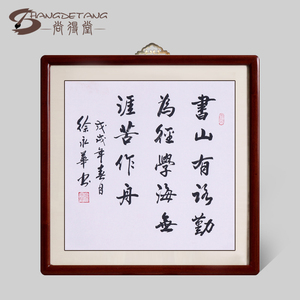 SHANGDETANG
尚得堂
書山有路勤
為徑學海無
涯苦作舟
戊戌年春月
徐永華书